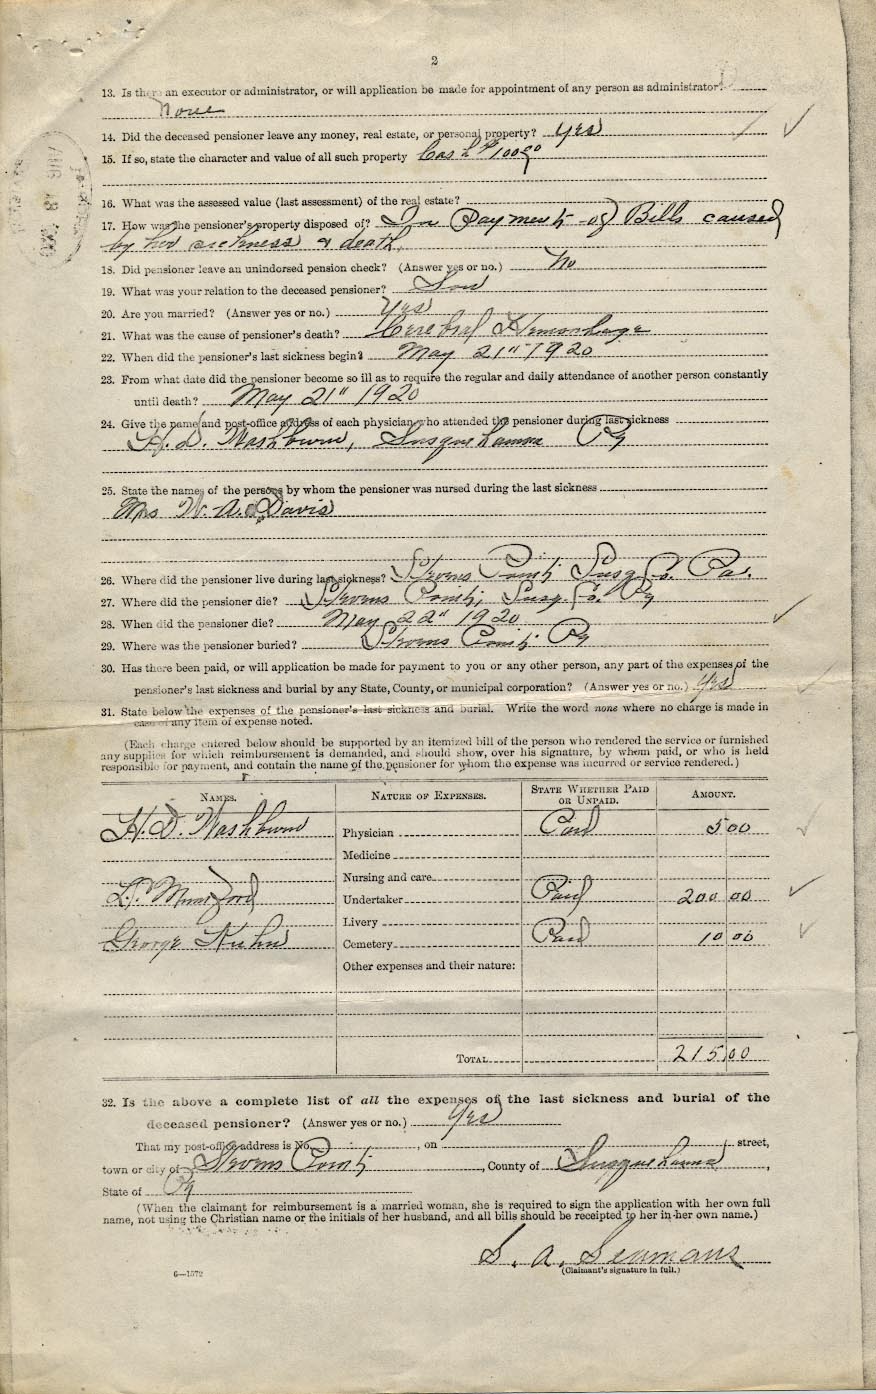 2
13. Is there an executor or administrator, or will application be made for appointment of any person as administrator?
None
14. Did the deceased pensioner leave any money, real estate, or personal property? Yes
15. If so, state the character and value of all such property Cash $100.00
16. What was the assessed value (last assessment) of the real estate?
17. How was the pensioner's property disposed of? In Payment of Bills caused
by her sickness & death.
18. Did pensioner leave an unindorsed pension check? (Answer yes or no.) No
19. What was your relation to the deceased pensioner? Son
20. Are you married? (Answer yes or no.) Yes
21. What was the cause of pensioner's death? Cerebral Hemorhage
22. When did the pensioner's last sickness begin? May 21" 1920
23. From what date did the pensioner become so ill as to require the regular and daily attendance of another person constantly
until death? May 21" 1920
24. Give the name and post-office address of each physician who attended the pensioner during last sickness
H. D. Washburn, Susquehanna Pa
25. State the names of the persons by whom the pensioner was nursed during the last sickness
Mrs W. A. Davis
26. Where did the pensioner live during last sickness? Stevens Point Susq. Co. Pa.
27. Where did the pensioner die? Stevens Point, Susq. Co. Pa
28. When did the pensioner die? May 22" 1920
29. Where was the pensioner buried? Stevens Point Pa
30. Has there been paid, or will application be made for payment to you or any other person, any part of the expenses of the
pensioner's last sickness and burial by any State, County, or municipal corporation? (Answer yes or no.) Yes
31. State below the expenses of the pensioner's last sickness and burial. Write the word none where no charge is made in
case of any item of expense noted.
(Each charge entered below should be supported by an itemized bill of the person who rendered the service or furnished
any supplies for which reimbursement is demanded, and should show, over his signature, by whom paid, or who is held
responsible for payment, and contain the name of the pensioner for whom the expense was incurred or service rendered.)
NAMES. NATURE OF EXPENSES. STATE WHETHER PAID OR UNPAID. AMOUNT.
H. D. Washburn Physician Paid 5 00
Medicine
Nursing and care
Undertaker Paid 200 00
Livery
George Kuhn Cemetery Paid 10 00
Other expenses and their nature:
TOTAL 215 00
32. Is the above a complete list of all the expenses of the last sickness and burial of the
deceased pensioner? (Answer yes or no.) Yes
That my post-office address is No. , on street,
town or city of Stevens Point, County of Susquehanna,
State of Pa
(When the claimant for reimbursement is a married woman, she is required to sign the application with her own full
name, not using the Christian name or the initials of her husband, and all bills should be receipted to her in her own name.)
S. A. Seumans
(Claimant's signature in full.)
6—1572